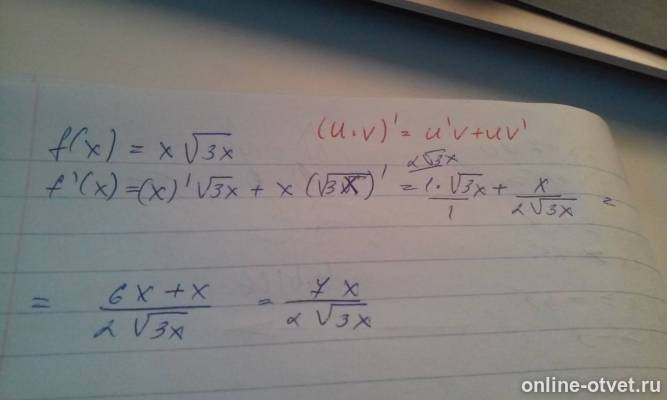 f(x) = x √3x (u·v)' = u'v + uv'
f'(x) = (x)' √3x + x (√3x)' = 2√3x / 1·√3x / 1 + x / 2√3x =
= 6x + x / 2√3x = 7x / 2√3x
online-otvet.ru